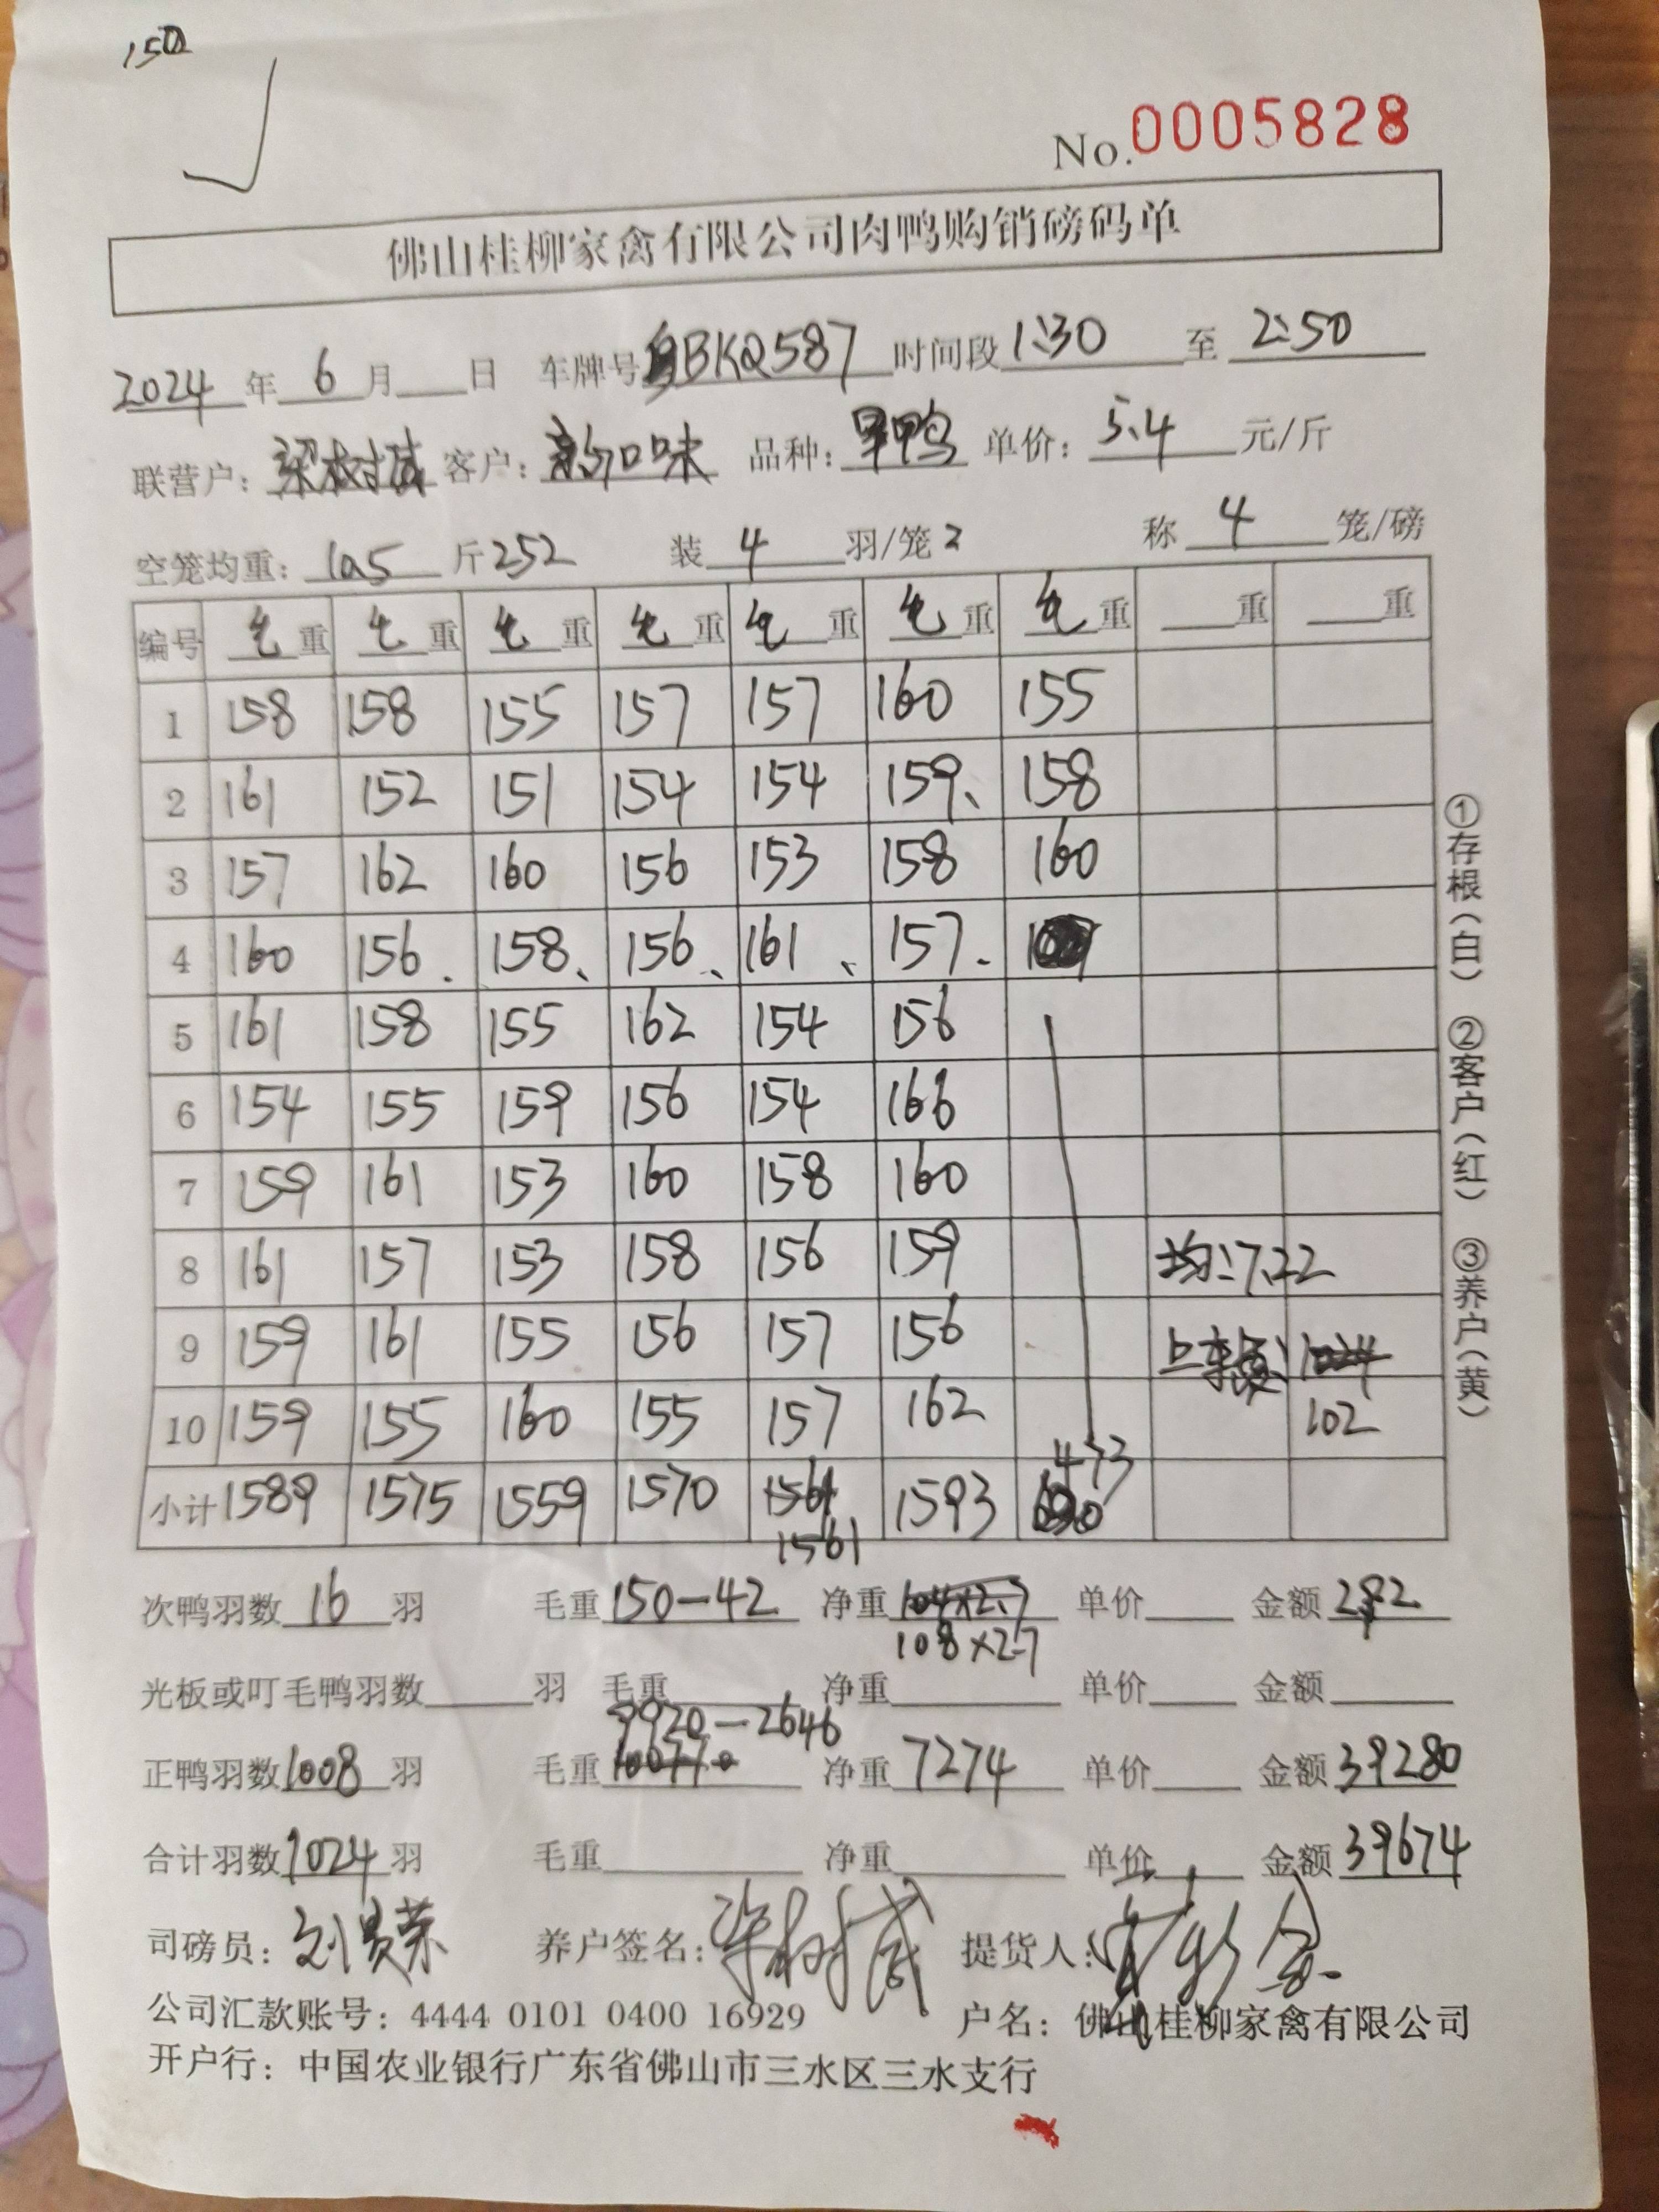 150
No.0005828
佛山桂柳家禽有限公司肉鸭购销磅码单
2024 年 6 月 日 车牌号 粤BKQ587 时间段 1:30 至 2:50
联营户: 梁树 客户: 新口味 品种: 旱鸭 单价: 5.4 元/斤
空笼均重: 10.5 斤 252 装 4 羽/笼 2 称 4 笼/磅
编号 毛重 毛重 毛重 毛重 毛重 毛重 毛重 重 重
1 158 158 155 157 157 160 155
2 161 152 151 154 154 159、 158
3 157 162 160 156 153 158 160
4 160 156. 158、 156、 161、 157.
5 161 158 155 162 154 156
6 154 155 159 156 154 166
7 159 161 153 160 158 160
8 161 157 153 158 156 159 均:7.22
9 159 161 155 156 157 156 上车费: 1024
10 159 155 160 155 157 162 102
473
小计 1589 1575 1559 1570 1561 1593
1561
次鸭羽数 16 羽 毛重 150-42 净重 104×2.7 单价 金额 292
108×2.7
光板或叮毛鸭羽数 羽 毛重 净重 单价 金额
9920-2646
正鸭羽数 1008 羽 毛重 净重 7274 单价 金额 39280
合计羽数 1024 羽 毛重 净重 单价 金额 39674
司磅员: 刘景荣 养户签名: 梁树 提货人:
公司汇款账号: 4444 0101 0400 16929 户名: 佛山桂柳家禽有限公司
开户行: 中国农业银行广东省佛山市三水区三水支行
①存根(白) ②客户(红) ③养户(黄)